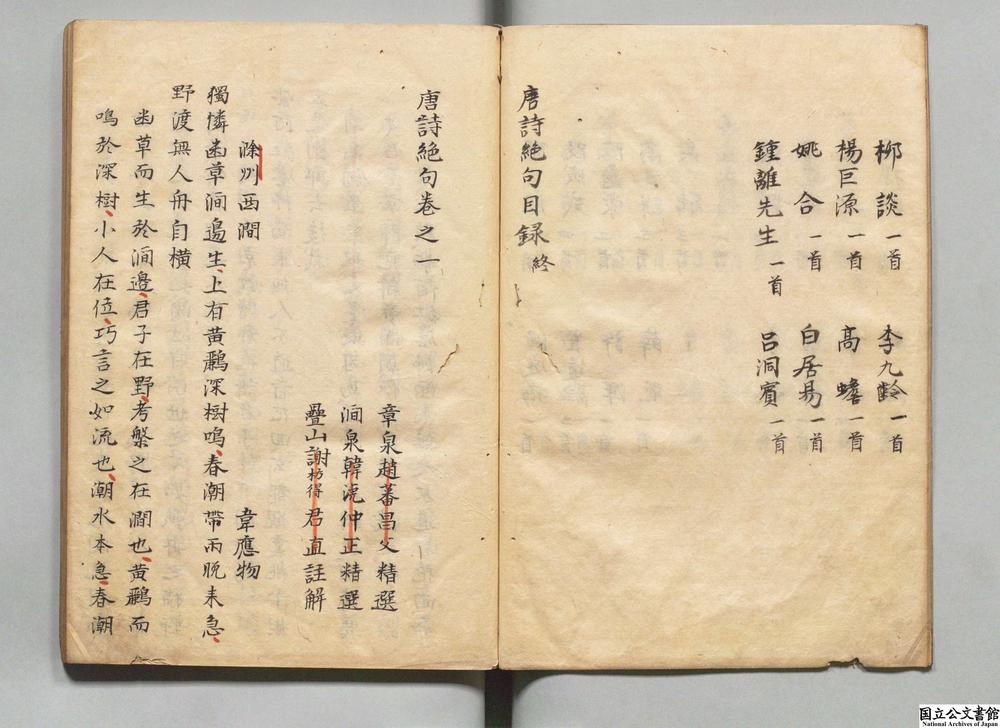 柳談一首 李九齡一首
楊巨源一首 高蟾一首
姚合一首 白居易一首
鍾離先生一首 呂洞賓一首
唐詩絶句目録終
唐詩絶句卷之一
章泉趙蕃昌父精選
澗泉韓淲仲正精選
疊山謝枋得君直註解
滁州西澗 韋應物
獨憐幽草澗邊生上有黄鸝深樹鳴春潮帶雨晩来急
野渡無人舟自横
幽草而生於澗邊君子在野考槃之在澗也黄鸝而
鳴於深樹小人在位巧言之如流也潮水本急春潮
国立公文書館
National Archives of Japan